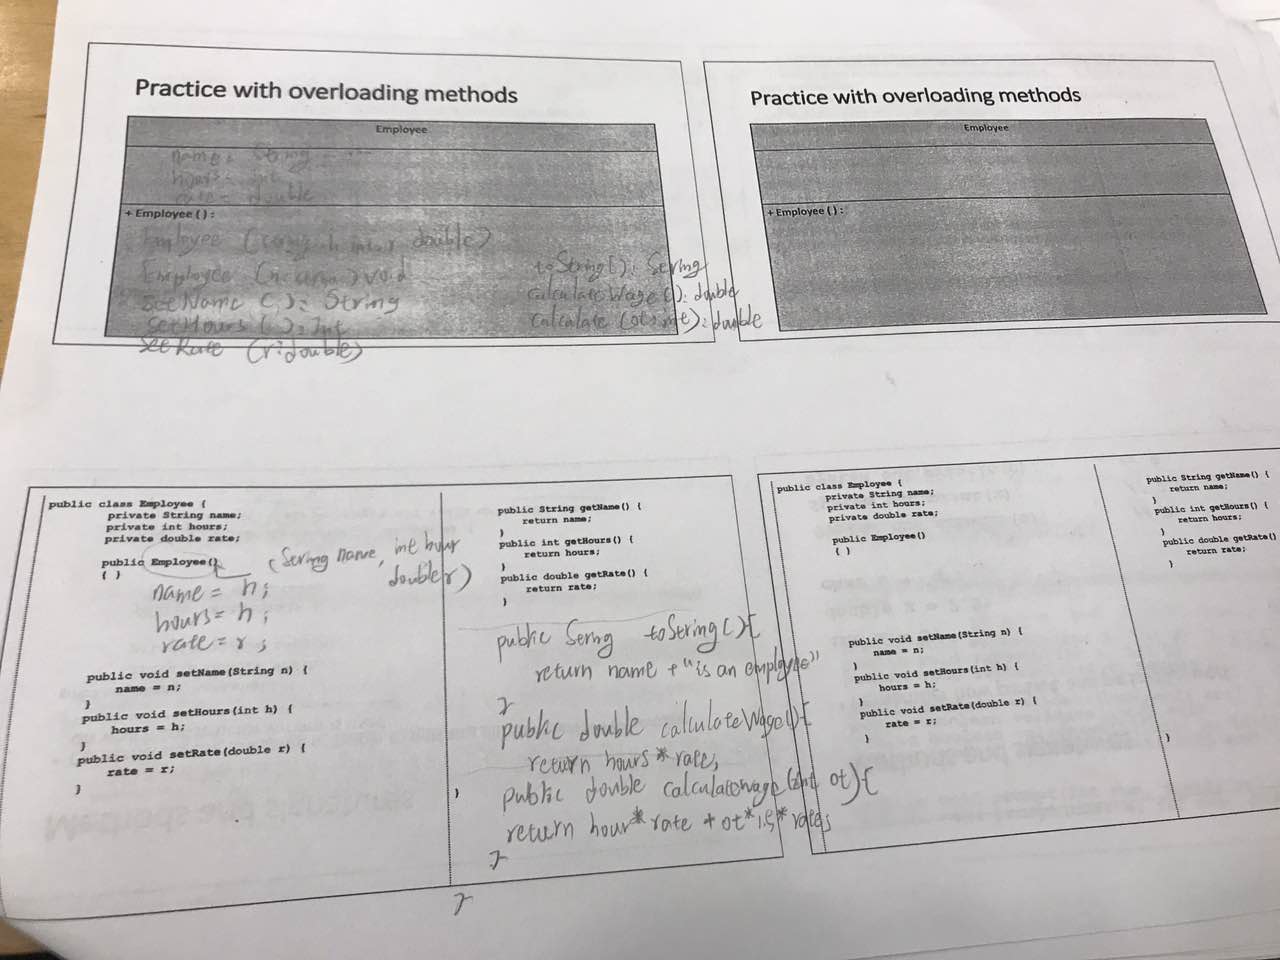 Practice with overloading methods
Employee
name: String
hours: int
rate: double
+ Employee ( ) :
Employee ( double)
Employee ( ) void
setName ( ): String
setHours ( ): Int
setRate (r:double)
toString(): String
calculateWage(): double
calculate (ot:int): double
Practice with overloading methods
Employee
+ Employee ( ) :
public class Employee {
private String name;
private int hours;
private double rate;
public Employee()
{ }
(String name, int hour
double r)
name = n;
hours = h;
rate = r ;
public void setName(String n) {
name = n;
}
public void setHours(int h) {
hours = h;
}
public void setRate(double r) {
rate = r;
}
public String getName() {
return name;
}
public int getHours() {
return hours;
}
public double getRate() {
return rate;
}
public String toString(){
return name + "is an employee"
}
public double calculateWage(){
return hours * rate;
public double calculatewage (int ot){
}
return hour * rate + ot * 1.5 * rate;
}
}
public class Employee {
private String name;
private int hours;
private double rate;
public Employee()
{ }
public void setName(String n) {
name = n;
}
public void setHours(int h) {
hours = h;
}
public void setRate(double r) {
rate = r;
}
public String getName() {
return name;
}
public int getHours() {
return hours;
}
public double getRate() {
return rate;
}
}